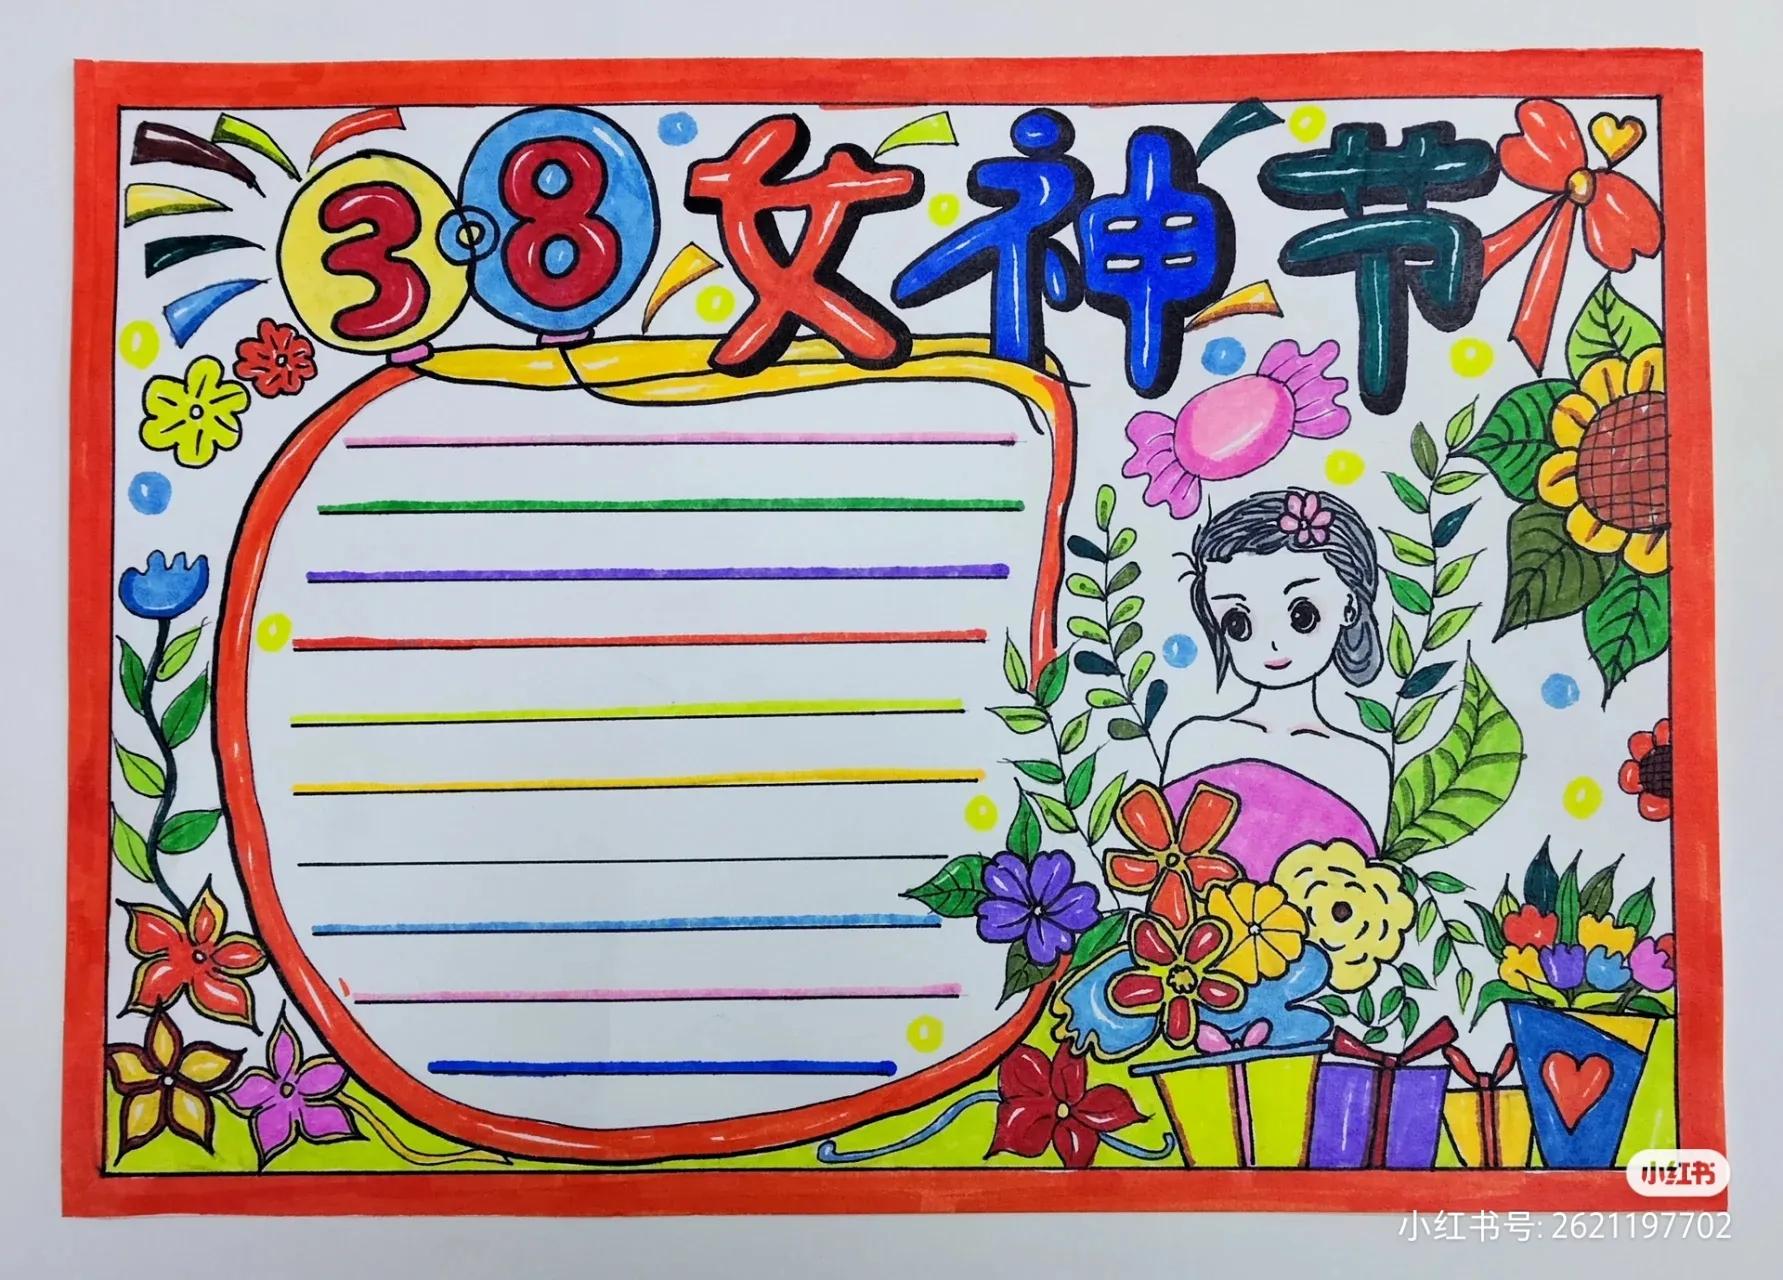 3.8女神节
小红书
小红书号: 2621197702